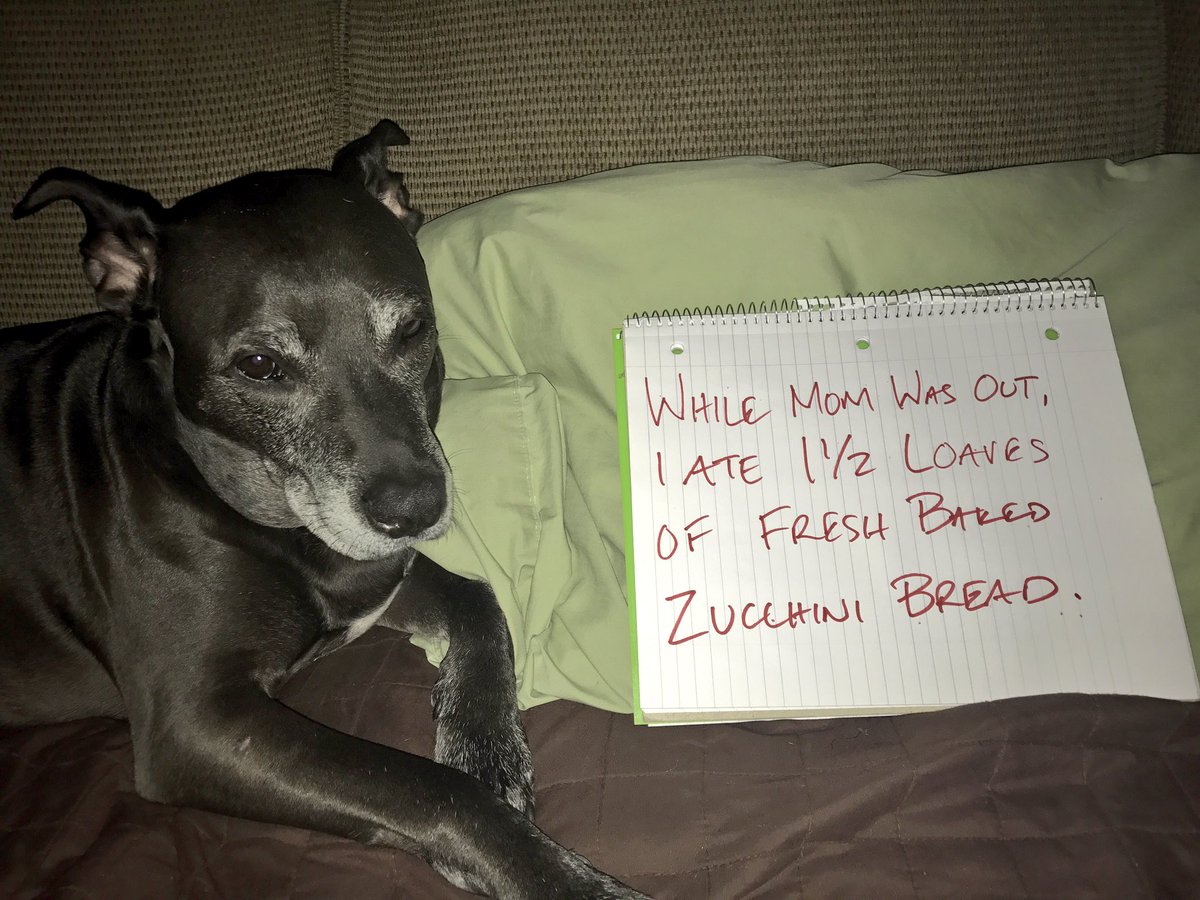 WHILE MOM WAS OUT,
I ATE 1 1/2 LOAVES
OF FRESH BAKED
ZUCCHINI BREAD.